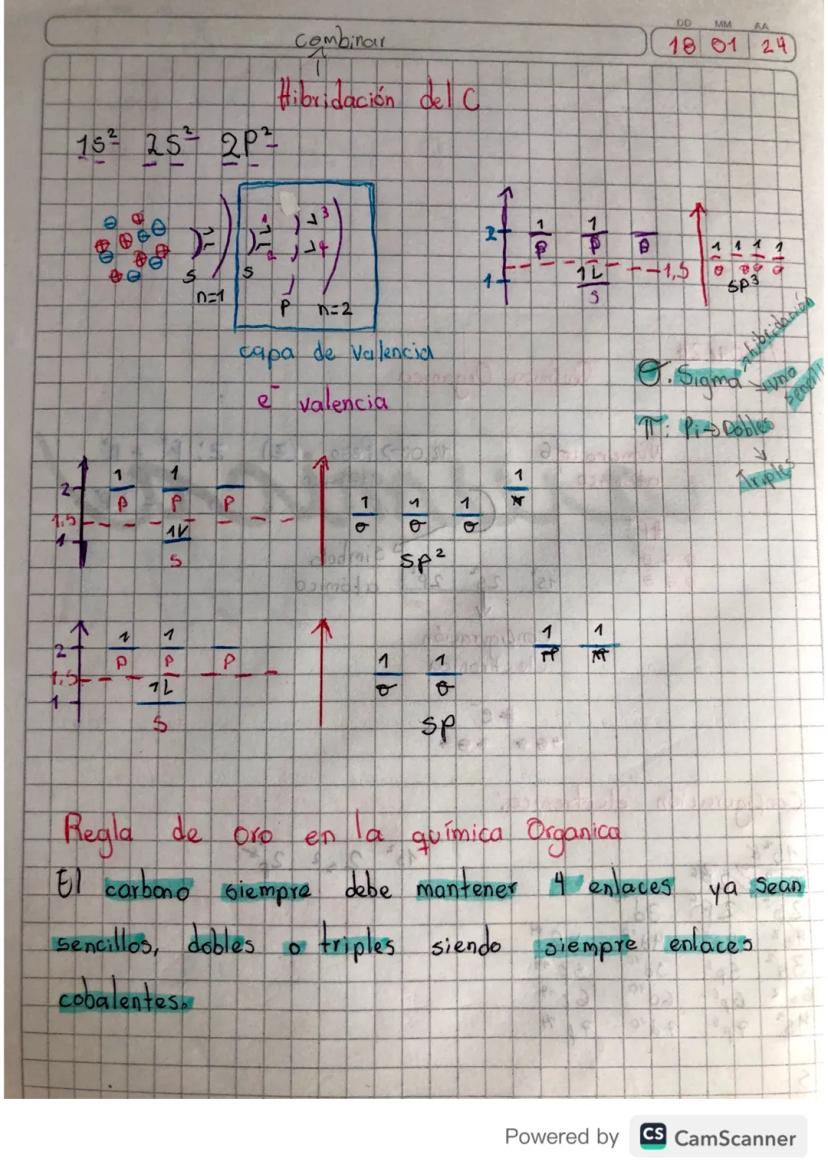 DD MM AA
18 01 24
combinar
Hibridación del C
1s² 2s² 2p²
1 3
2 4
s s
n=1 p n=2
capa de valencia
e⁻ valencia
2 1 1
p p p
1,5
1 1L
s
1 1 1 1
σ σ σ σ
sp³
σ: Sigma → hibridación
→ uno sencill
π: Pi → Dobles
↓
Triples
2 1 1
p p p
1,5
1 1V
s
1 1 1 1
σ σ σ π
sp²
2 1 1
p p p
1,5
1 1L
s
1 1 1 1
σ σ π π
sp
Regla de oro en la química Organica
El carbono siempre debe mantener 4 enlaces ya sean
sencillos, dobles o triples siendo siempre enlaces
cobalentes.
Powered by CS CamScanner